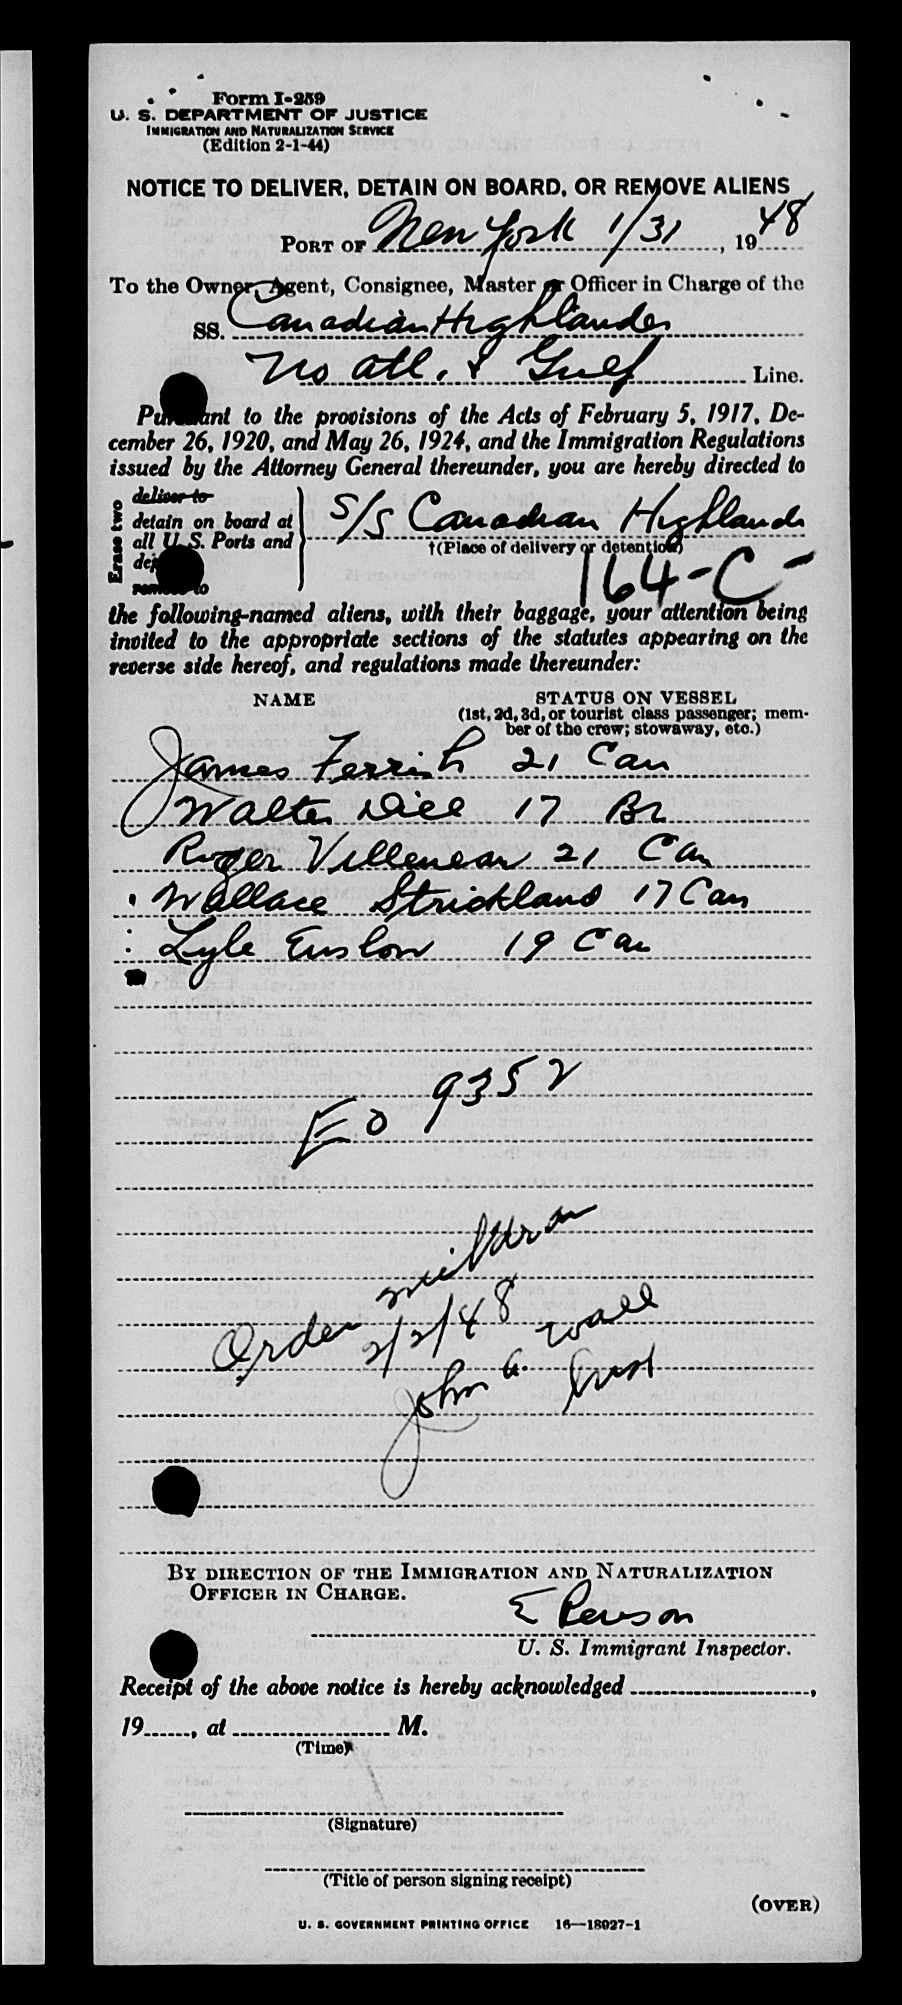 Form I-259
U. S. DEPARTMENT OF JUSTICE
IMMIGRATION AND NATURALIZATION SERVICE
(Edition 2-1-44)
NOTICE TO DELIVER, DETAIN ON BOARD, OR REMOVE ALIENS
PORT OF New York 1/31, 1948
To the Owner, Agent, Consignee, Master or Officer in Charge of the
SS. Canadian Highlander
No Atl. & Gulf Line.
Pursuant to the provisions of the Acts of February 5, 1917, De-
cember 26, 1920, and May 26, 1924, and the Immigration Regulations
issued by the Attorney General thereunder, you are hereby directed to
Erase two
deliver to
detain on board at
all U. S. Ports and
remove to
S/S Canadian Highlander
†(Place of delivery or detention)
164-C-
the following-named aliens, with their baggage, your attention being
invited to the appropriate sections of the statutes appearing on the
reverse side hereof, and regulations made thereunder:
NAME
STATUS ON VESSEL
(1st, 2d, 3d, or tourist class passenger; mem-
ber of the crew; stowaway, etc.)
James Ferrish 21 Can
Walter Dill 17 Br
Roger Villeneau 21 Can
Wallace Strickland 17 Can
Lyle Enslow 19 Can
EO 9352
Order withdrawn
2/2/48
John G. Wall
Insp
BY DIRECTION OF THE IMMIGRATION AND NATURALIZATION
OFFICER IN CHARGE.
E
U. S. Immigrant Inspector.
Receipt of the above notice is hereby acknowledged ,
19 , at M.
(Time)
(Signature)
(Title of person signing receipt)
(OVER)
U. S. GOVERNMENT PRINTING OFFICE 16—18027-1